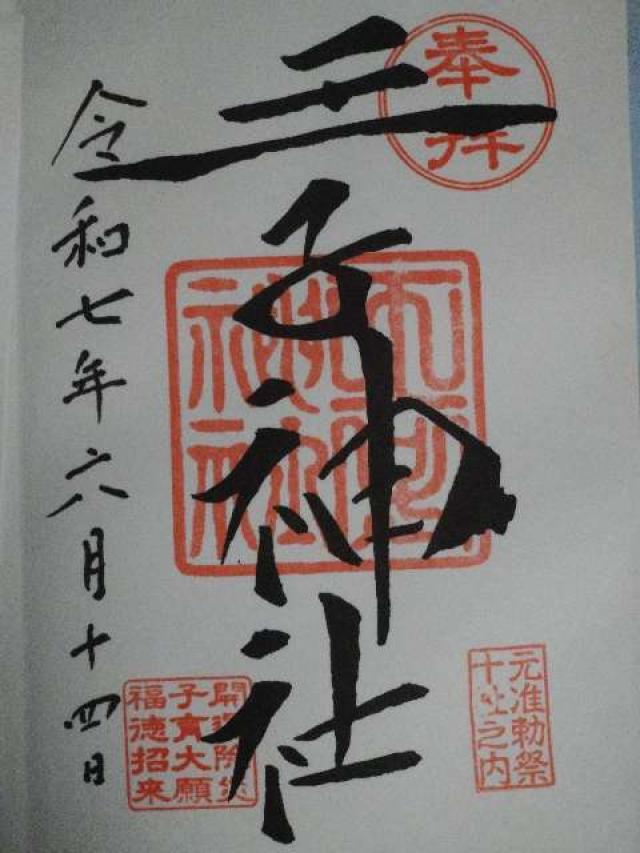 奉拝
王子神社
令和七年六月十四日
元准勅祭
十社之内
開運除災
子育大願
福徳招来